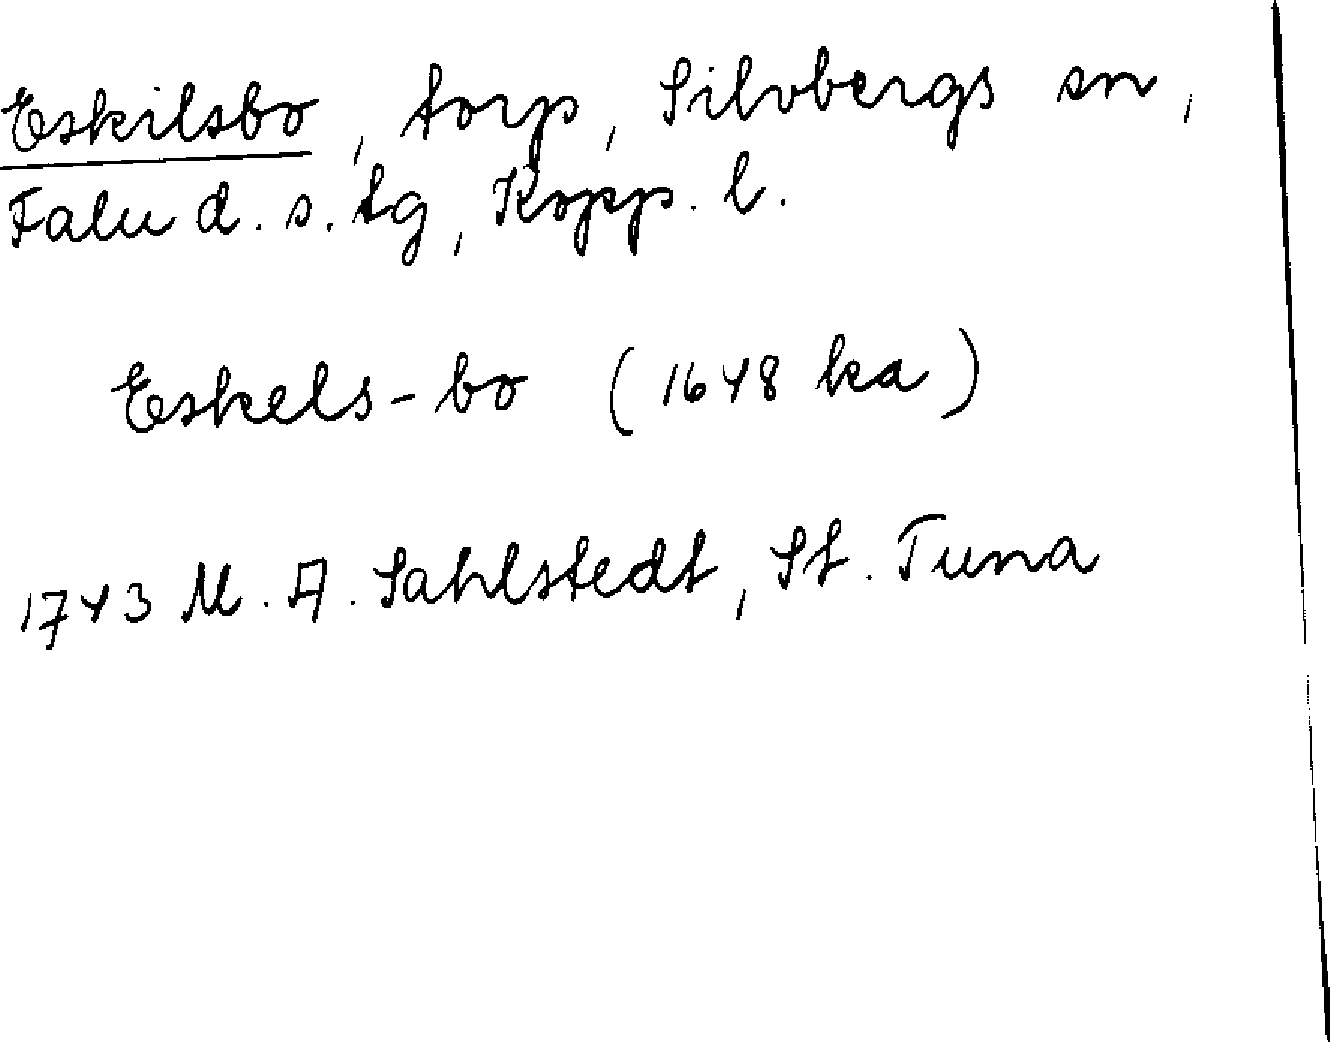 Eskilsbo, torp, Silvbergs sn,
Falu d. s. tg, Kopp. l.
Eskels-bo (1648 ka)
1743 M. A. Sahlstedt, St. Tuna